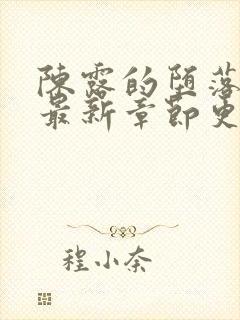 陳露的堕落
最新章節更
程小奈